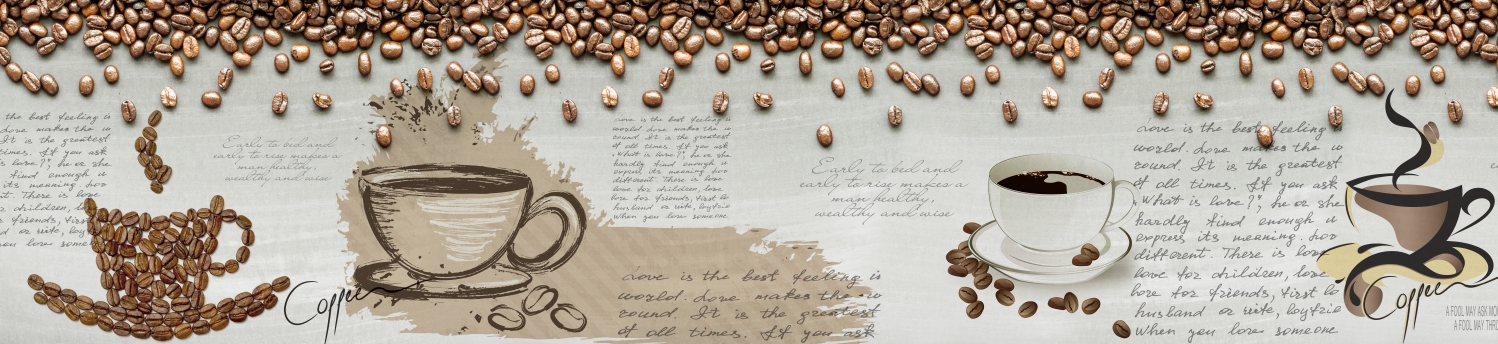 the best feeling is
dove makes the w
It is the greatest
times. If you ask
is love?", he or she
find enough w
its meaning. For
t. There is love
or children, love
friends, first
d or wife, boyfrie
you love someone
Early to bed and
early to rise makes a
man healthy,
wealthy and wise
Coffee
love is the best feeling is
world. dove makes the w
round. It is the greatest
of all times. If you ask
"What is love?", he or she
hardly find enough w
express its meaning. For
different. There is love
love for children, love
love for friends, first lo
husband or wife, boyfrie
When you love someone
love is the best feeling is
world. dove makes the w
round. It is the greatest
of all times. If you ask
Early to bed and
early to rise makes a
man healthy,
wealthy and wise
love is the best feeling is
world. dove makes the w
round. It is the greatest
of all times. If you ask
"What is love?", he or she
hardly find enough w
express its meaning. For
different. There is love
love for children, love
love for friends, first lo
husband or wife, boyfrie
When you love someone
Coffee
A FOOL MAY ASK MO
A FOOL MAY THRO